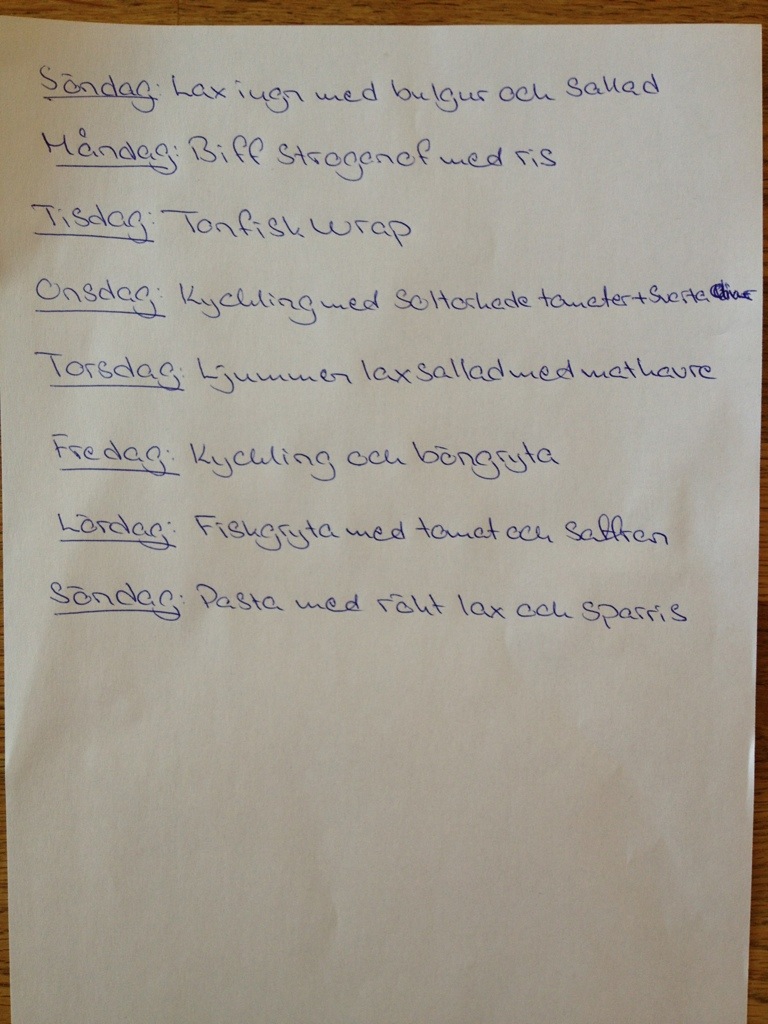 Söndag: Lax i ugn med bulgur och sallad
Måndag: Biff stroganof med ris
Tisdag: Tonfisk wrap
Onsdag: Kyckling med soltorkade tomater + svarta
Torsdag: Ljummen laxsallad med mathavre
Fredag: Kyckling och böngryta
Lördag: Fiskgryta med tomat och saffran
Söndag: Pasta med rökt lax och sparris